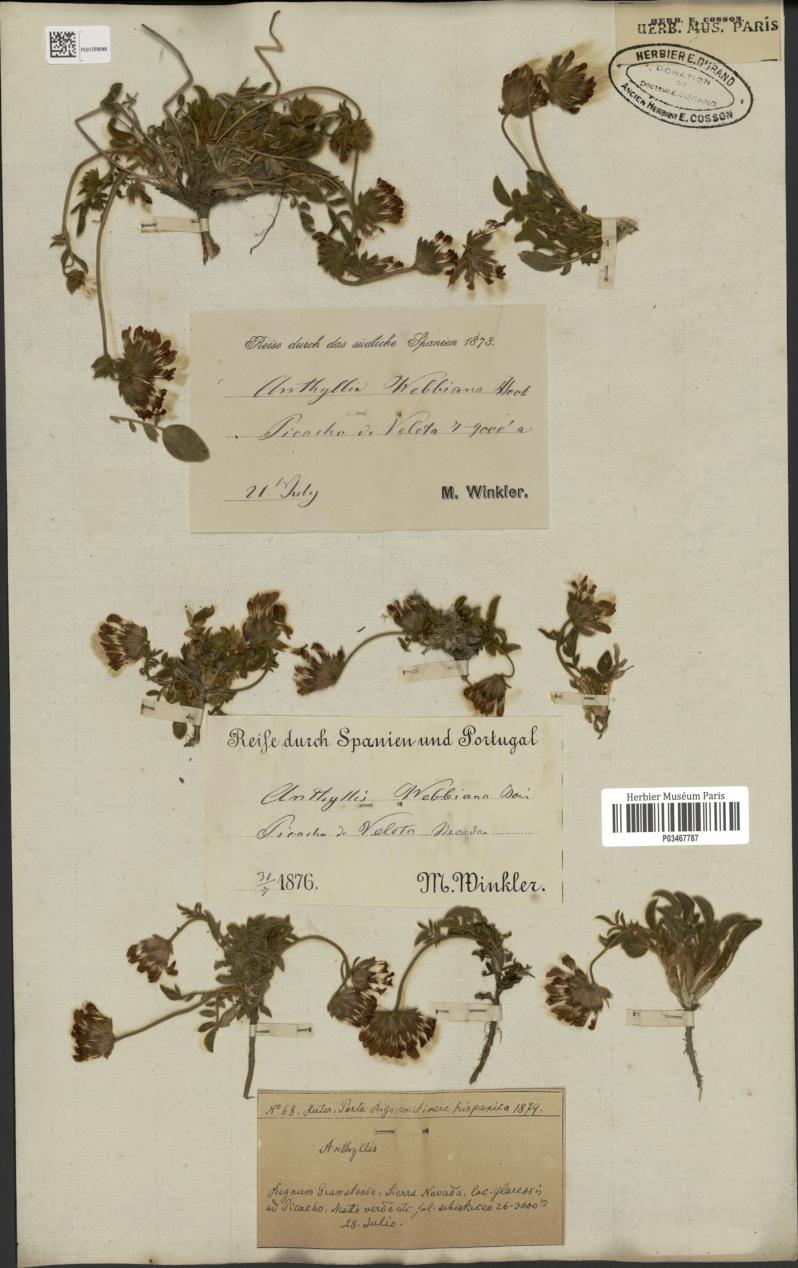 HERB. E. COSSON.
HERB. MUS. PARIS
HERBIER E. DURAND
DONATION
DU
Docteur E. DURAND
ANCIEN HERBIER E. COSSON
Reise durch das südliche Spanien 1873.
Anthyllis Webbiana Hook
Picacho de Veleta 9000' a
21 July
M. Winkler.
Reise durch Spanien und Portugal
Anthyllis Webbiana
Picacho de Veleta
31/7 1876.
M. Winkler.
Herbier Muséum Paris
P03467787
No 68. Huter, Porta Rigo, ex itinere hispanico 1879.
Anthyllis
Regnum Granatense, Sierra Nevada, loc. glareosis
ad Picacho, verde etc sol. schistaceo 26-3000 m
28. Julio.